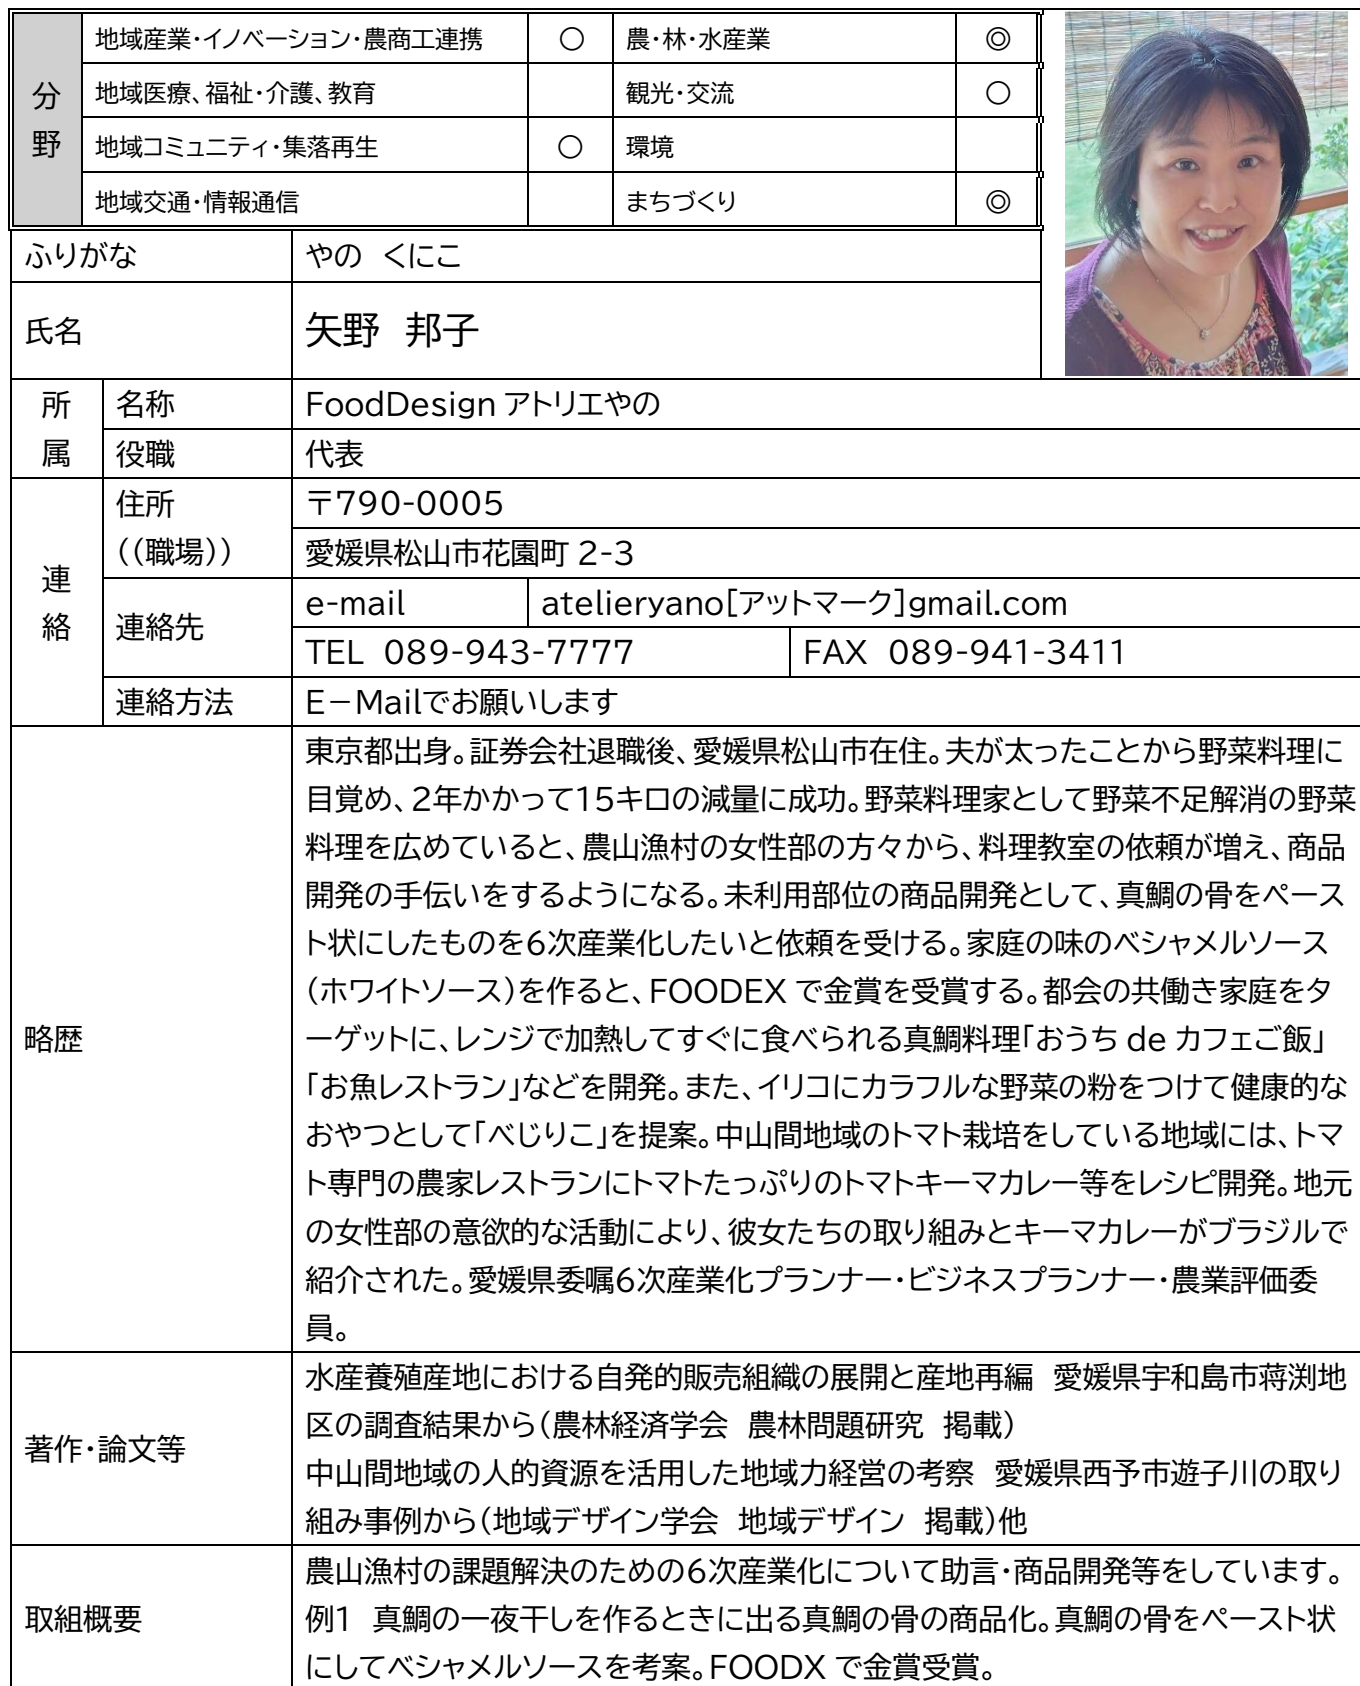 分野
地域産業・イノベーション・農商工連携 ○ 農・林・水産業 ◎
地域医療、福祉・介護、教育 観光・交流 ○
地域コミュニティ・集落再生 ○ 環境
地域交通・情報通信 まちづくり ◎
ふりがな やの くにこ
氏名 矢野 邦子
所属 名称 FoodDesign アトリエやの
役職 代表
連絡 住所 〒790-0005
((職場)) 愛媛県松山市花園町 2-3
連絡先 e-mail atelieryano[アットマーク]gmail.com
TEL 089-943-7777 FAX 089-941-3411
連絡方法 E-Mailでお願いします
略歴
東京都出身。証券会社退職後、愛媛県松山市在住。夫が太ったことから野菜料理に
目覚め、2年かかって15キロの減量に成功。野菜料理家として野菜不足解消の野菜
料理を広めていると、農山漁村の女性部の方々から、料理教室の依頼が増え、商品
開発の手伝いをするようになる。未利用部位の商品開発として、真鯛の骨をペース
ト状にしたものを6次産業化したいと依頼を受ける。家庭の味のベシャメルソース
(ホワイトソース)を作ると、FOODEX で金賞を受賞する。都会の共働き家庭をタ
ーゲットに、レンジで加熱してすぐに食べられる真鯛料理「おうち de カフェご飯」
「お魚レストラン」などを開発。また、イリコにカラフルな野菜の粉をつけて健康的な
おやつとして「べじりこ」を提案。中山間地域のトマト栽培をしている地域には、トマ
ト専門の農家レストランにトマトたっぷりのトマトキーマカレー等をレシピ開発。地元
の女性部の意欲的な活動により、彼女たちの取り組みとキーマカレーがブラジルで
紹介された。愛媛県委嘱6次産業化プランナー・ビジネスプランナー・農業評価委
員。
著作・論文等
水産養殖産地における自発的販売組織の展開と産地再編 愛媛県宇和島市蒋渕地
区の調査結果から(農林経済学会 農林問題研究 掲載)
中山間地域の人的資源を活用した地域力経営の考察 愛媛県西予市遊子川の取り
組み事例から(地域デザイン学会 地域デザイン 掲載)他
取組概要
農山漁村の課題解決のための6次産業化について助言・商品開発等をしています。
例1 真鯛の一夜干しを作るときに出る真鯛の骨の商品化。真鯛の骨をペースト状
にしてベシャメルソースを考案。FOODX で金賞受賞。